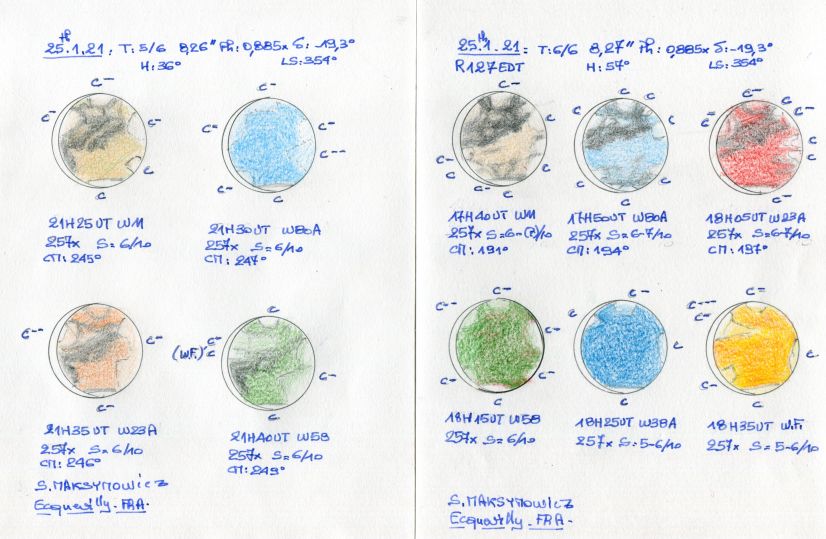 25.1.21 : T: 5/6 8,26" Ph: 0,885x δ: -19,3°
H: 36° LS: 354°
C-
C- C-
C
C
21H25UT WM
257x S=6/10
CM: 245°
C-
C= C-
C--
C-
C
21H30UT W80A
257x S=6/10
CM: 247°
C--
C-
C-
21H35UT W23A
257x S=6/10
CM: 246°
C
(W.F.) C=
C
C-
C
21H40UT W58
257x S=6/10
CM: 249°
S. MAKSYMOWICZ
Ecquevilly - FRA.
25.1.21 : T: 6/6 8,27" Ph: 0,885x δ: -19,3°
R127EDT H: 57° LS: 354°
C-
C
C-
C
C
17H40UT WM
257x S=6-(7)/10
CM: 191°
C C
C
C
C
17H50UT W80A
257x S=6-7/10
CM: 194°
C-
C=
C-
C-
C
C
C-
18H05UT W23A
257x S=6-7/10
CM: 197°
C-
C-
C-
C-
C
18H15UT W58
257x S=6/10
C
C
C
18H25UT W38A
257x S=5-6/10
C---
C-
C=
C.
C-
C
18H35UT W.Fi
257x S=5-6/10
S. MAKSYMOWICZ
Ecquevilly - FRA -